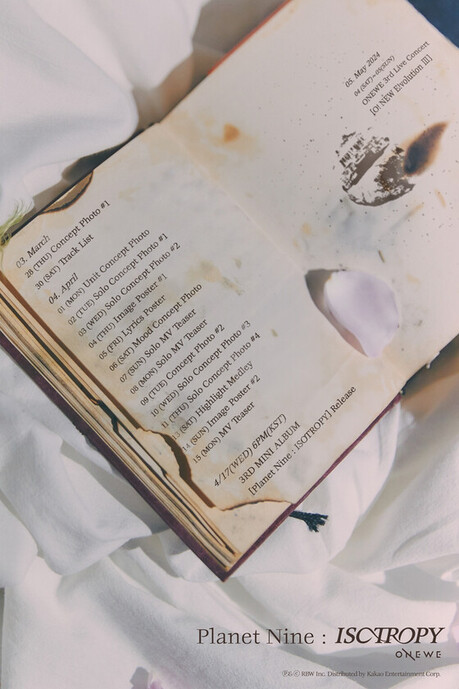 03. March
28 (THU) Concept Photo #1
30 (SAT) Track List
04. April
01 (MON) Unit Concept Photo
02 (TUE) Solo Concept Photo #1
03 (WED) Solo Concept Photo #2
04 (THU) Image Poster #1
05 (FRI) Lyrics Poster
06 (SAT) Mood Concept Photo
07 (SUN) Solo MV Teaser
08 (MON) Solo MV Teaser
09 (TUE) Concept Photo #2
10 (WED) Solo Concept Photo #3
11 (THU) Solo Concept Photo #4
13 (SAT) Highlight Medley
14 (SUN) Image Poster #2
15 (MON) MV Teaser
4/17(WED) 6PM(KST)
3RD MINI ALBUM
[Planet Nine : ISOTROPY] Release
05. May 2024
04 (SAT)~05(SUN)
ONEWE 3rd Live Concert
[O! NEW E!volution III]
Planet Nine : ISOTROPY
ONEWE
℗&ⓒ RBW Inc. Distributed by Kakao Entertainment Corp.